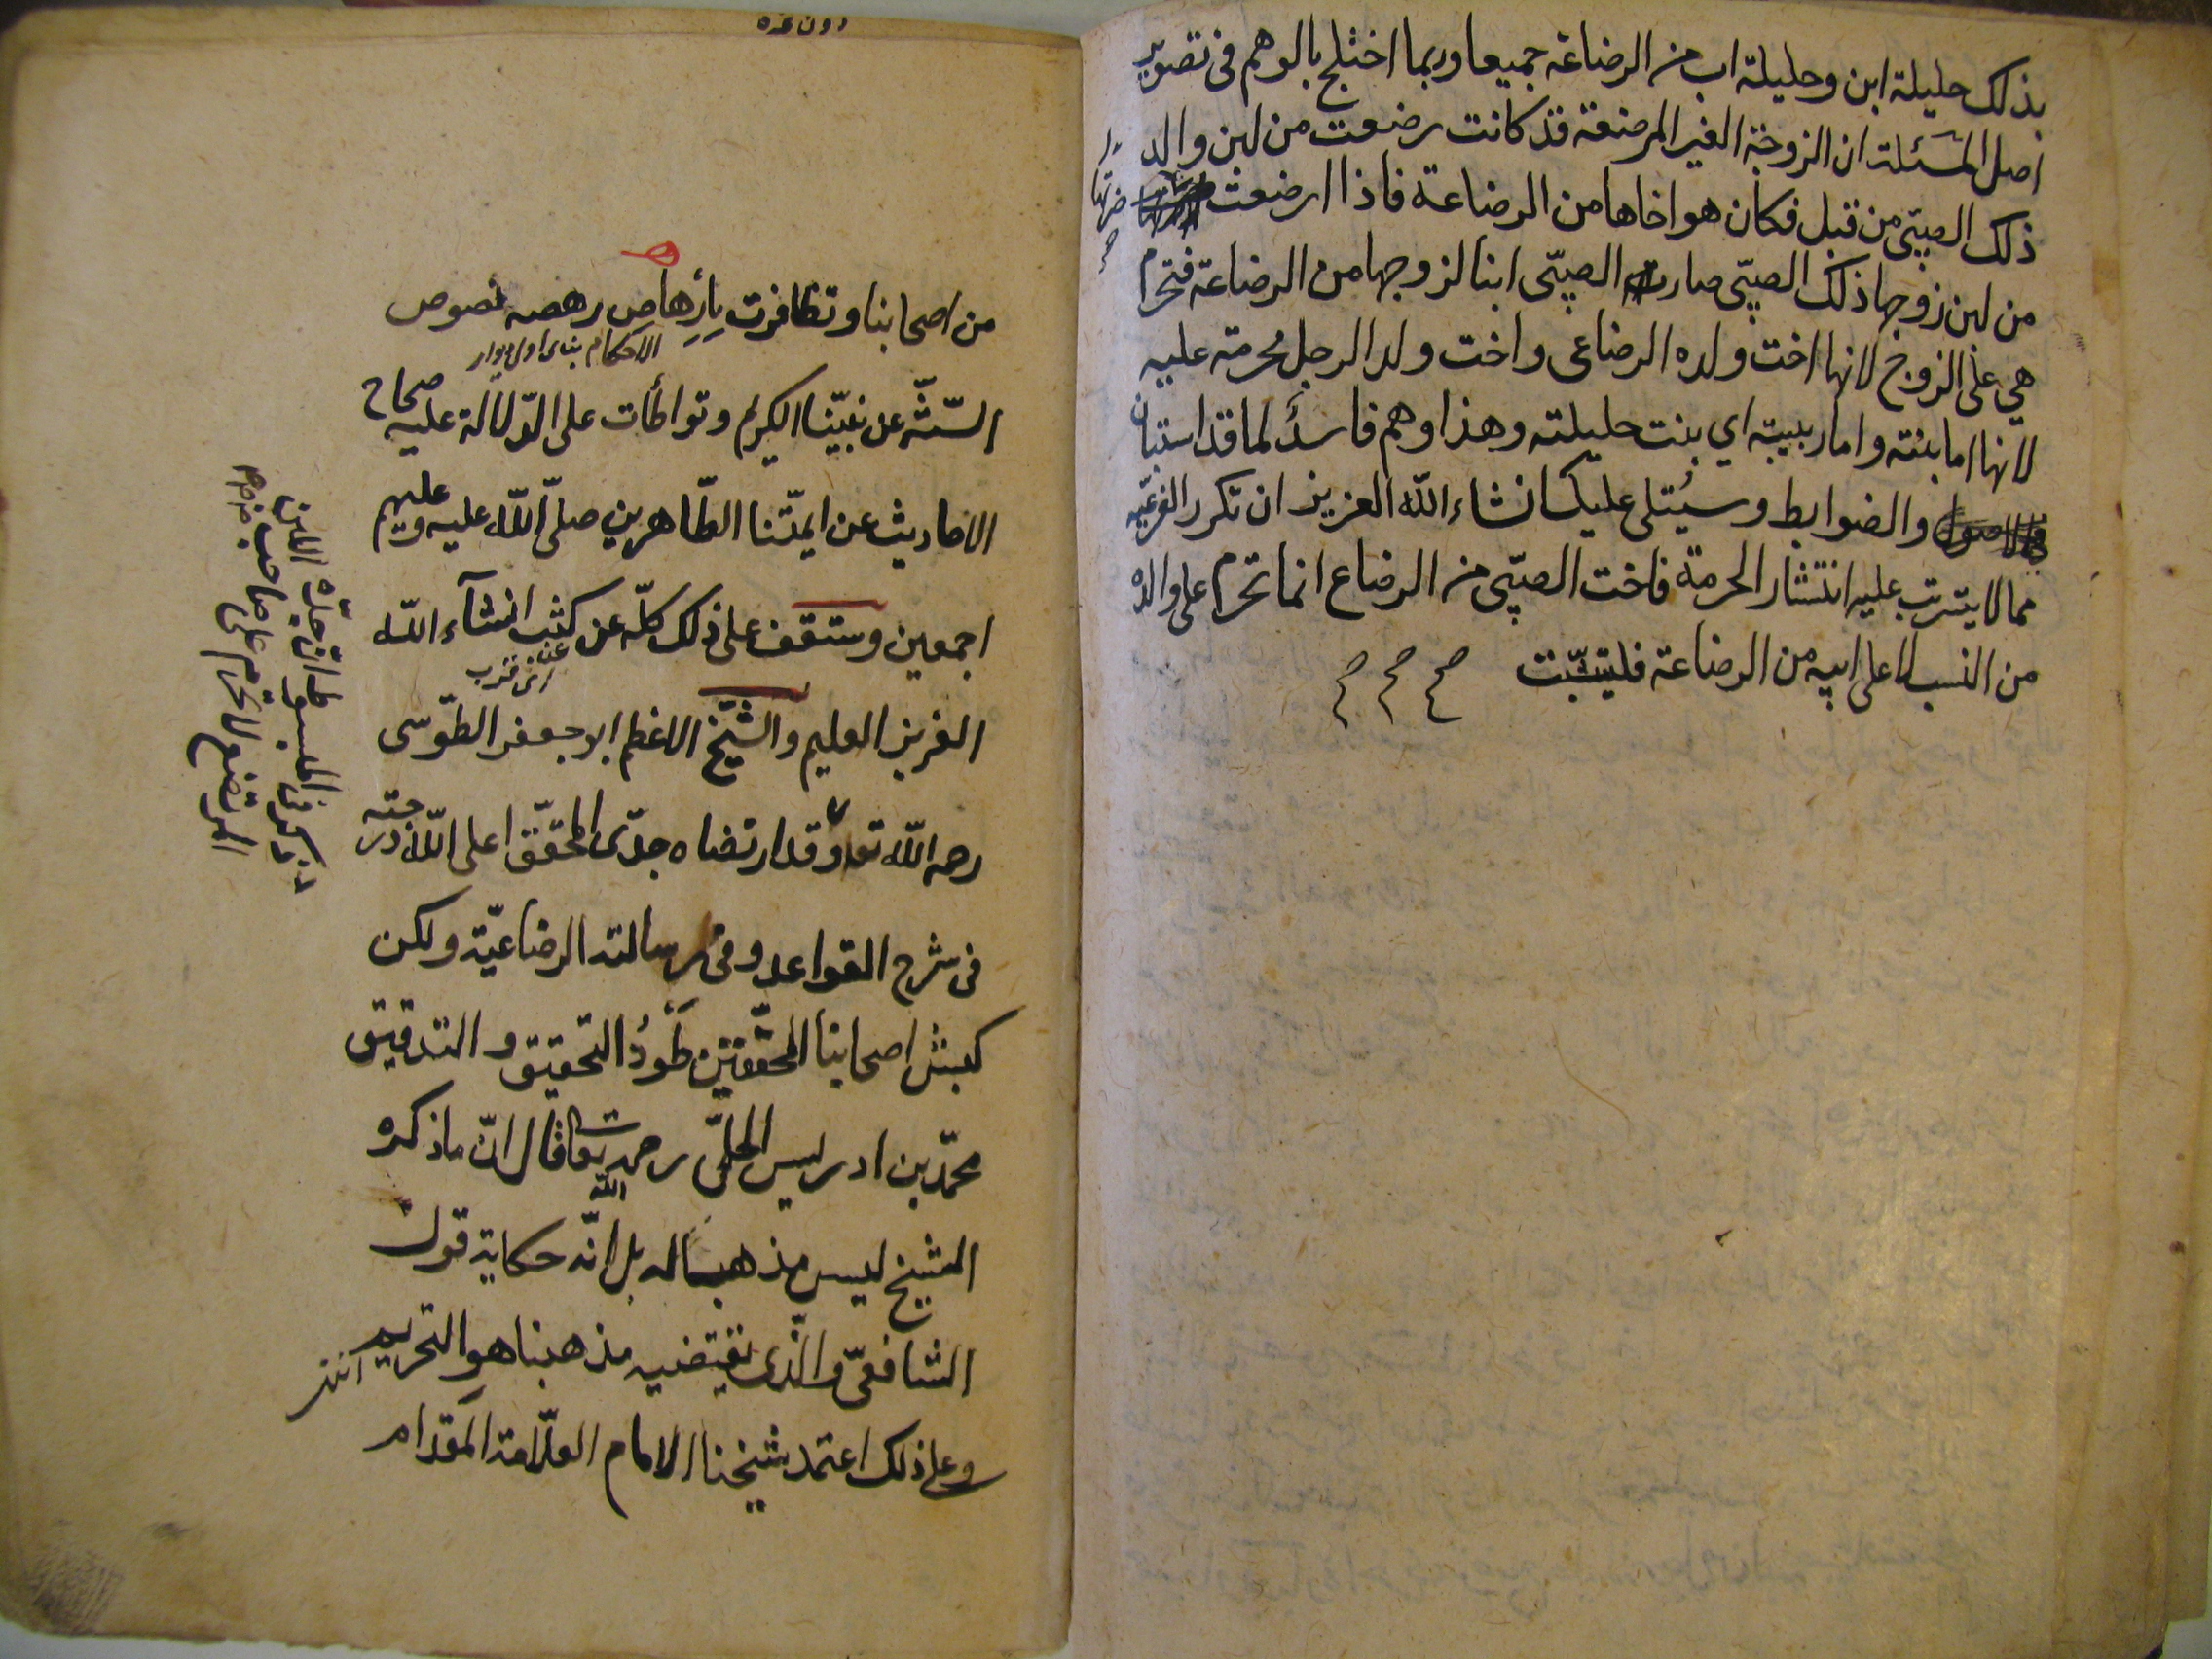 بذلك حليلة ابن وحليلة اب من الرضاعة جميعا وربما اختلج بالوهم فى تصوير
اصل المسئلة ان الزوجة الغير المرضعة قد كانت رضعت من لبن والد
ذلك الصبّى من قبل فكان هو اخاها من الرضاعة فاذا ارضعت
ضرتها
صح
من لبن زوجها ذلك الصبّى صار الصبّى ابنا لزوجها من الرضاعة فتحرم
هي على الزوج لانها اخت ولده الرضاعى واخت ولد الرجل محرمة عليه
لانها اما بنته واما ربيبته اي بنت حليلته وهذا وهم فاسدٌ لما قد استبان
والضوابط وسيُتلى عليك انشاء الله العزيز ان تكرر الفرعيّه
مما لا يترتب عليه انتشار الحرمة فاخت الصبّى من الرضاع انما تحرم على والده
من النسب لا على ابيه من الرضاعة فليتثبّت صح صح صح
من اصحابنا وتظافرت بِإرْهاصِ رهصه نصوص
الاحكام بناى اول ديوار
السّنّة عن نبيّنا الكريم وتواطأت على الدّلالة عليه صحاح
الاحاديث عن ايمّتنا الطّاهرين صلّى اللّه عليه وعليهم
اجمعين وستقف على ذلك كلّه عن كثب انشآء اللّه
اى عن قرب
العزيز العليم والشّيخ الاعظم ابو جعفر الطّوسى
رحمه اللّه تعا وقد ارتضاه جدّى المحقّق اعلى اللّه درجته
فى شرح القواعد وفى رسالته الرضاعيّة ولكن
كبش اصحابنا المحقّقين طَوْدُ التحقيق والتدقيق
محمّد بن ادريس الحلّى رحمه الله تعا قال انّ ما ذكره
الشيخ ليس مذهبا له بل انّه حكاية قول
الشافعىّ والّذى يقتضيه مذهبنا هو التحريم انتهى
وعلى ذلك اعتمد شيخنا الامام العلّامة المقدام
ذكر فى المبسوط انّ جدّة اللبن
المرتضع لا تحرم على صاحب